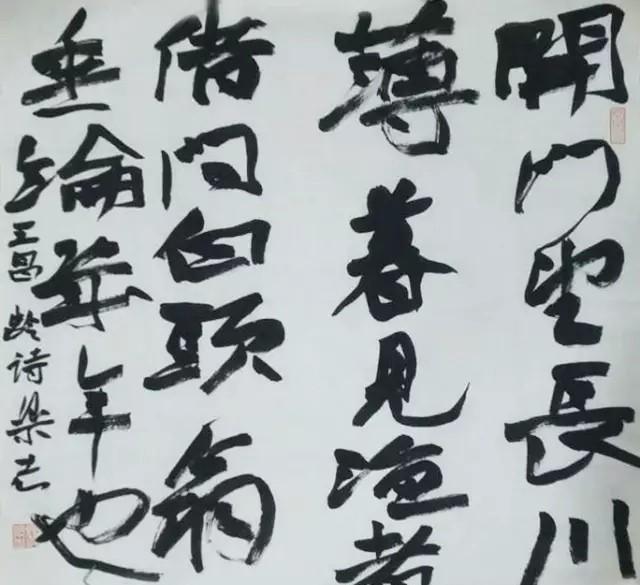 開門望長川
薄暮見漁者
借問白頭翁
垂綸幾年也
王昌龄诗梁志